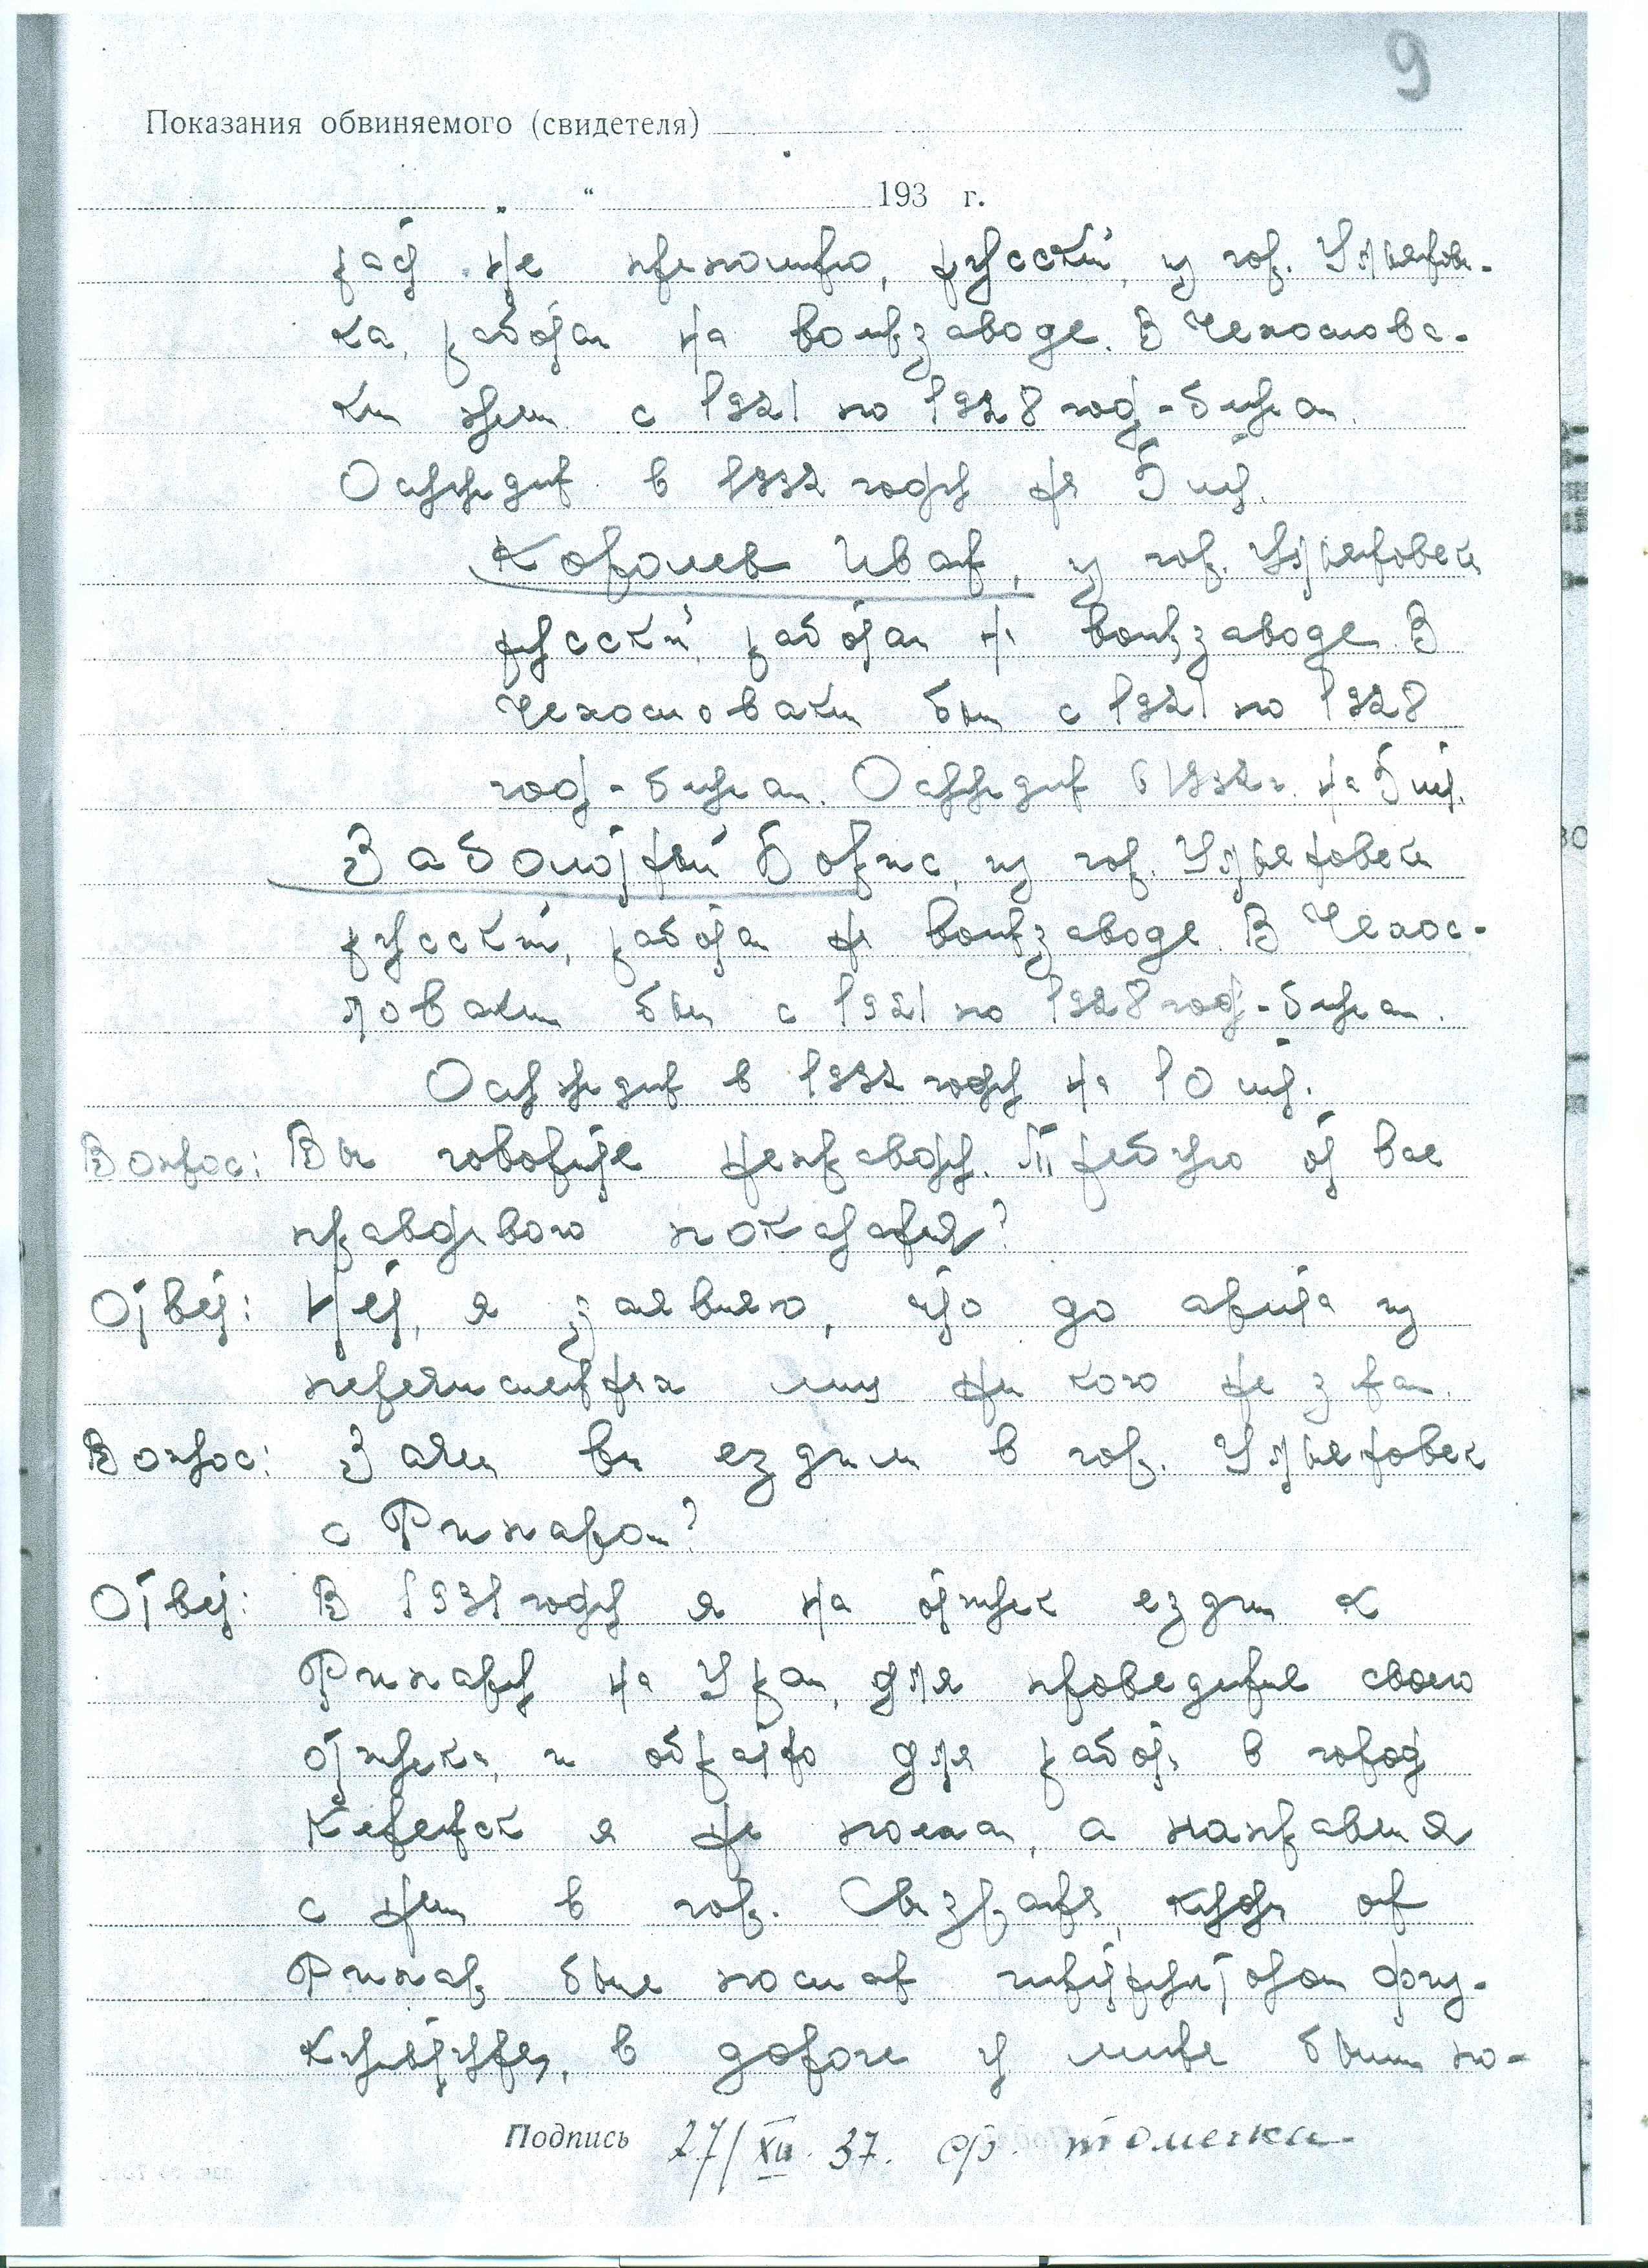 9
Показания обвиняемого (свидетеля)
„ “ 193 г.
не припомню, русский, из гор. Ульяновс-
ка, работал на волфзаводе. В Чехослова-
кии жил с 1921 по 1928 год-бежал.
Осужден в 1932 году на 5 лет.
Королев Иван, из гор. Ульяновск
русский, работал на волфзаводе. В
Чехословакии был с 1921 по 1928
год-бежал. Осужден в 1932 г. на 5 лет.
Заболотный Борис, из гор. Ульяновск
русский, работал на волфзаводе. В Чехос-
ловакии был с 1921 по 1928 год-бежал.
Осужден в 1932 году на 10 лет.
Вопрос: Вы говорите неправду. Требую от вас
правдивого показания?
Ответ: Нет, я заявляю, что до ареста из
перечисленных лиц ни кого не знал.
Вопрос: Зачем вы ездили в гор. Ульяновск
с Рихаром?
Ответ: В 1931 году я на отпуск ездил к
Рихару на Урал, для проведения своего
отпуска, и обратно для работы в город
Керенск я не поехал, а направился
с ним в гор. Сызрань, куда он
Рихар был послан инструктором физ-
культуры, в дороге у меня были по-
Подпись 27/XII 37. ср. томечки